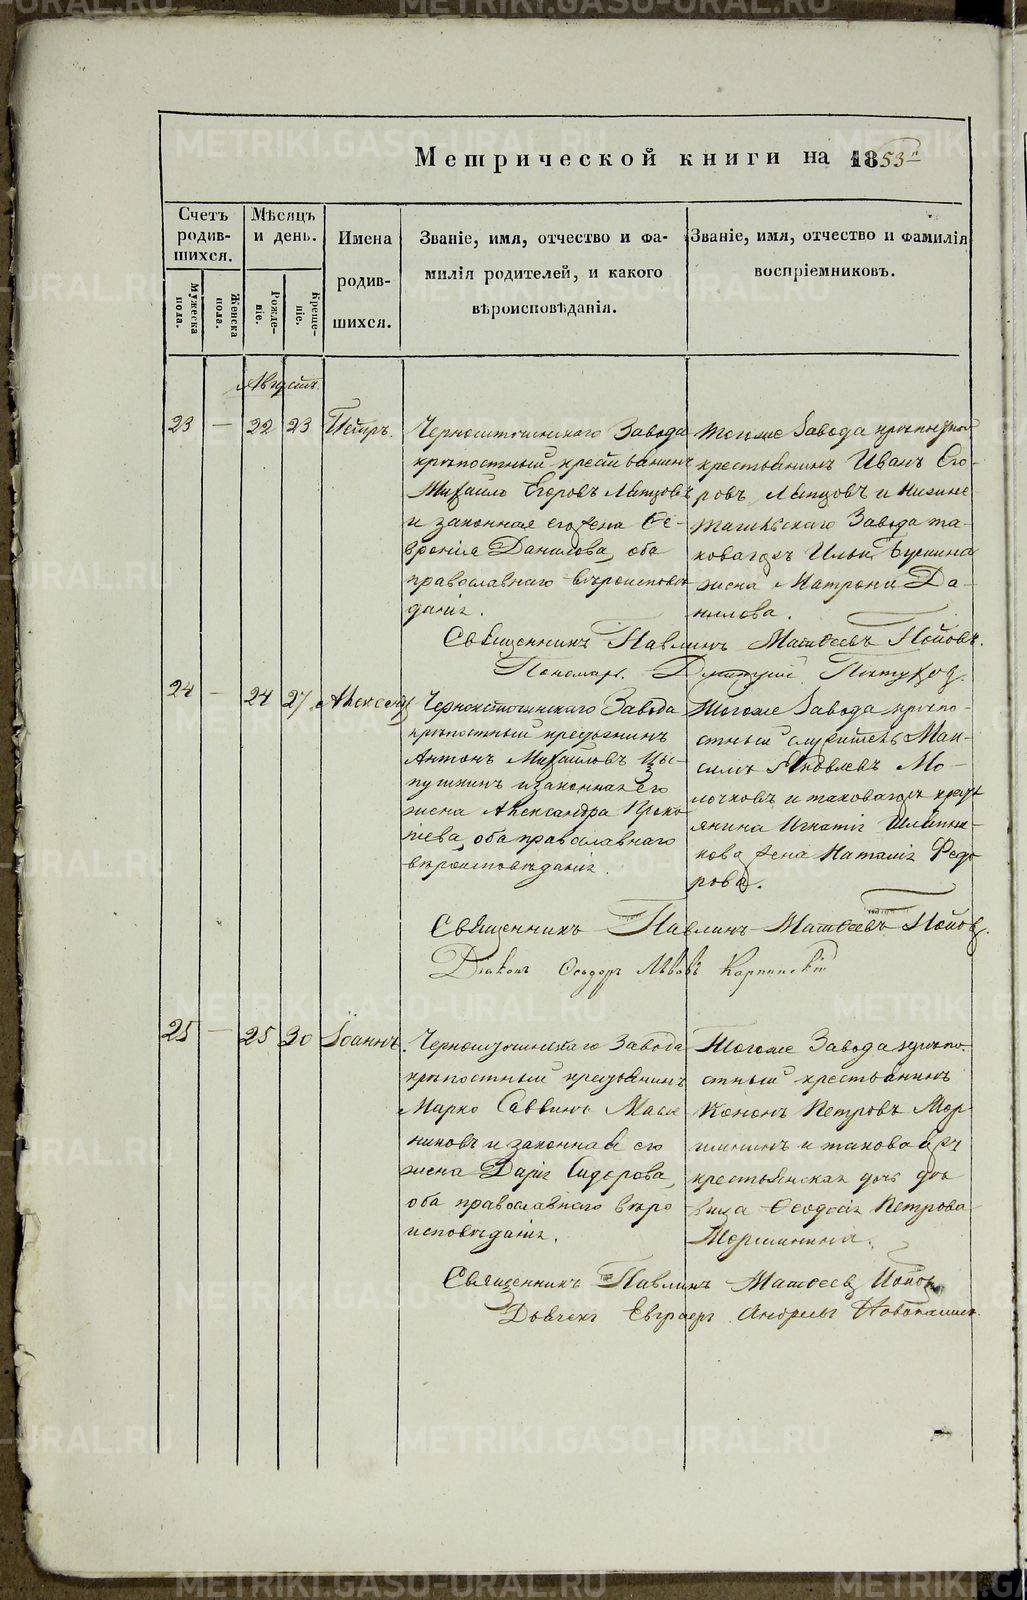 Метрической книги на 1853й
Счетъ родившихся.
Мѣсяцъ и день.
Имена родившихся.
Званіе, имя, отчество и фа-
милія родителей, и какого
вѣроисповѣданія.
Званіе, имя, отчество и фамилія
воспріемниковъ.
Мужеска пола.
Женска пола.
Рожде-
ніе.
Креще-
ніе.
Августъ
23 — 22 23 Петръ.
Черноисточинскаго Завода
крѣпостный крестьянинъ
Михаило Егоровъ
и законная его жена Ѳе-
вронія Данилова, оба
православнаго вѣроисповѣ
данія.
Тогоже Завода крѣпостной
крестьянинъ Иванъ Его-
ровъ и Нижне
тагильскаго Завода та-
коваго жъ Ильи
жена Матрона Да-
нилова.
Священникъ Павлинъ Матѳеевъ Поповъ.
Пономарь Дмитрій Пѣтухов.
24 — 24 27 Александръ
Черноисточинскаго Завода
крѣпостный крестьянинъ
Антонъ Михаиловъ Цы-
пушкинъ и законная его
жена Александра Проко
піева, оба православнаго
вѣроисповѣданія.
Тогоже Завода крѣпо-
стный служитель Мак-
симъ Яковлевъ Мо-
лочковъ и таковагожъ крест
янина Игнатія
кова жена Наталія Ѳедо
рова.
Священникъ Павлинъ Матѳеевъ Поповъ.
Діаконъ Ѳеодоръ Львовъ Карпинскій
25 — 25 30 Іоаннъ.
Черноисточинскаго Завода
крѣпостный крестьянинъ
Марко Саввинъ Масле
никовъ и законная его
жена Дарія Сидорова,
оба православнаго вѣро
исповѣданія.
Тогоже Завода крѣпо-
стный крестьянинъ
Кононъ Петровъ Мор
шининъ и таковагожъ
крестьянская дочь дѣ
вица Ѳеодосія Петрова
Моршинина.
Священникъ Павлинъ Матѳеевъ Поповъ
Дьячекъ Евграфъ Андреевъ